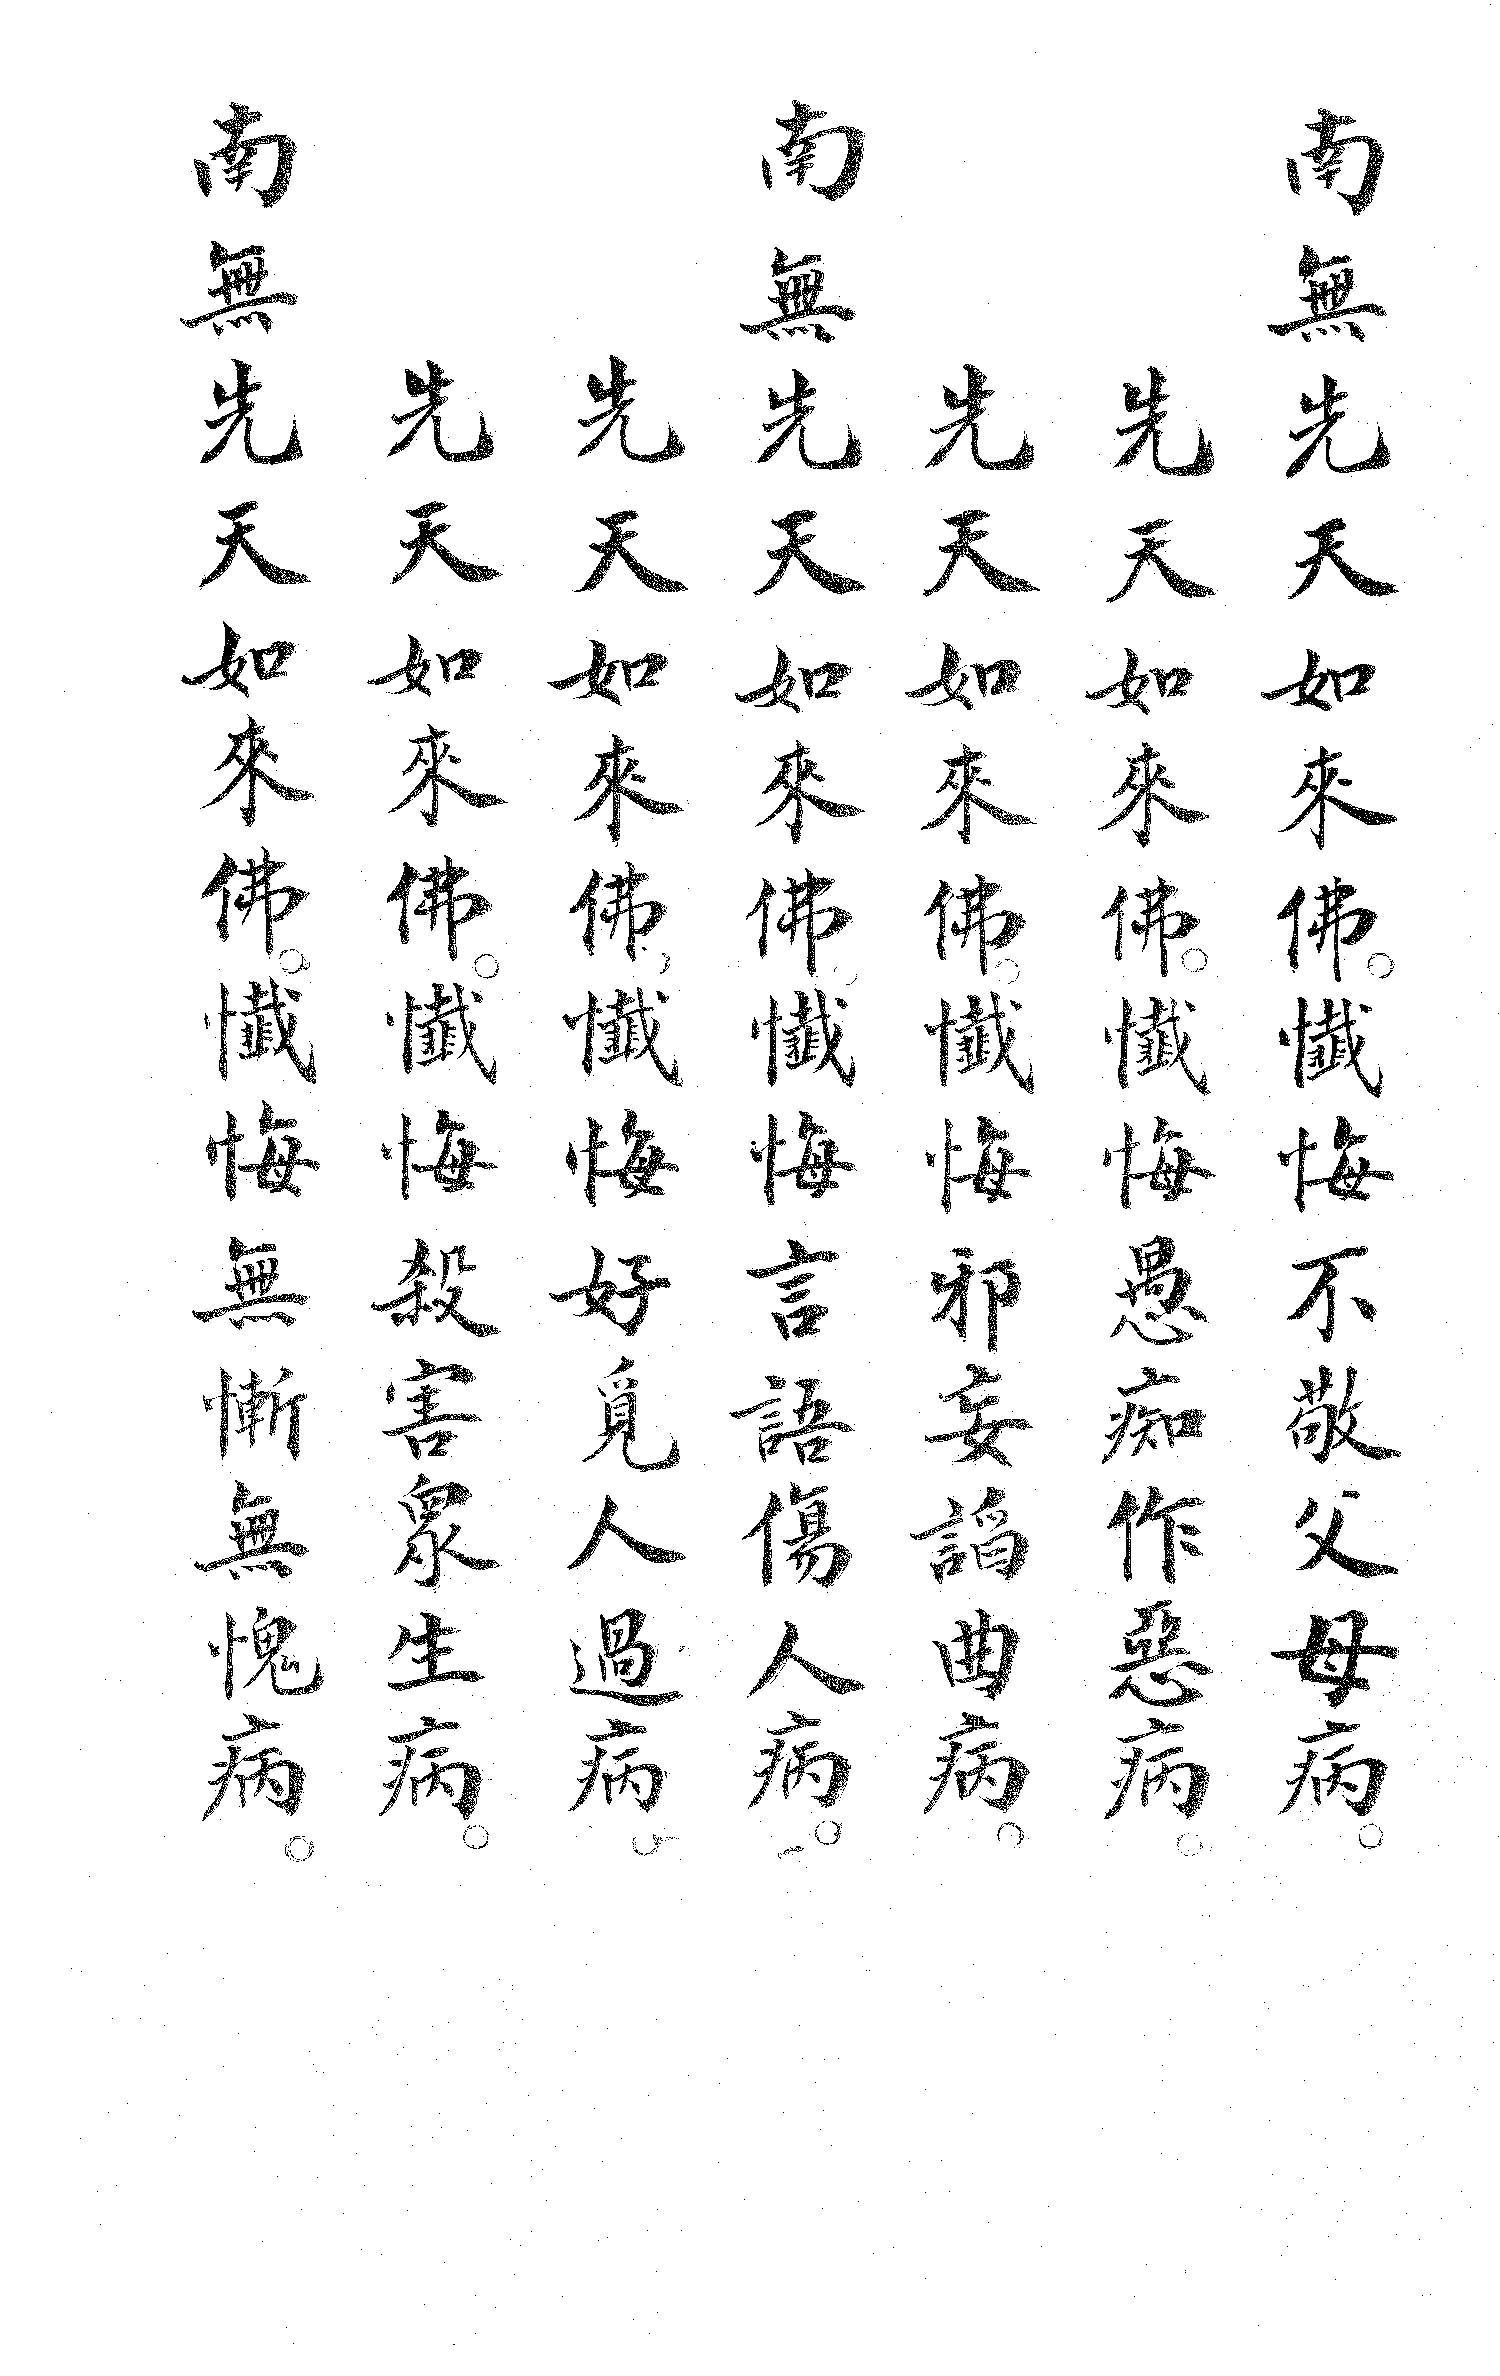 南無先天如來佛。懺悔不敬父母病。
先天如來佛。懺悔愚痴作惡病。
先天如來佛。懺悔邪妄謟曲病。
南無先天如來佛。懺悔言語傷人病。
先天如來佛。懺悔好覓人過病。
先天如來佛。懺悔殺害眾生病。
南無先天如來佛。懺悔無慚無愧病。